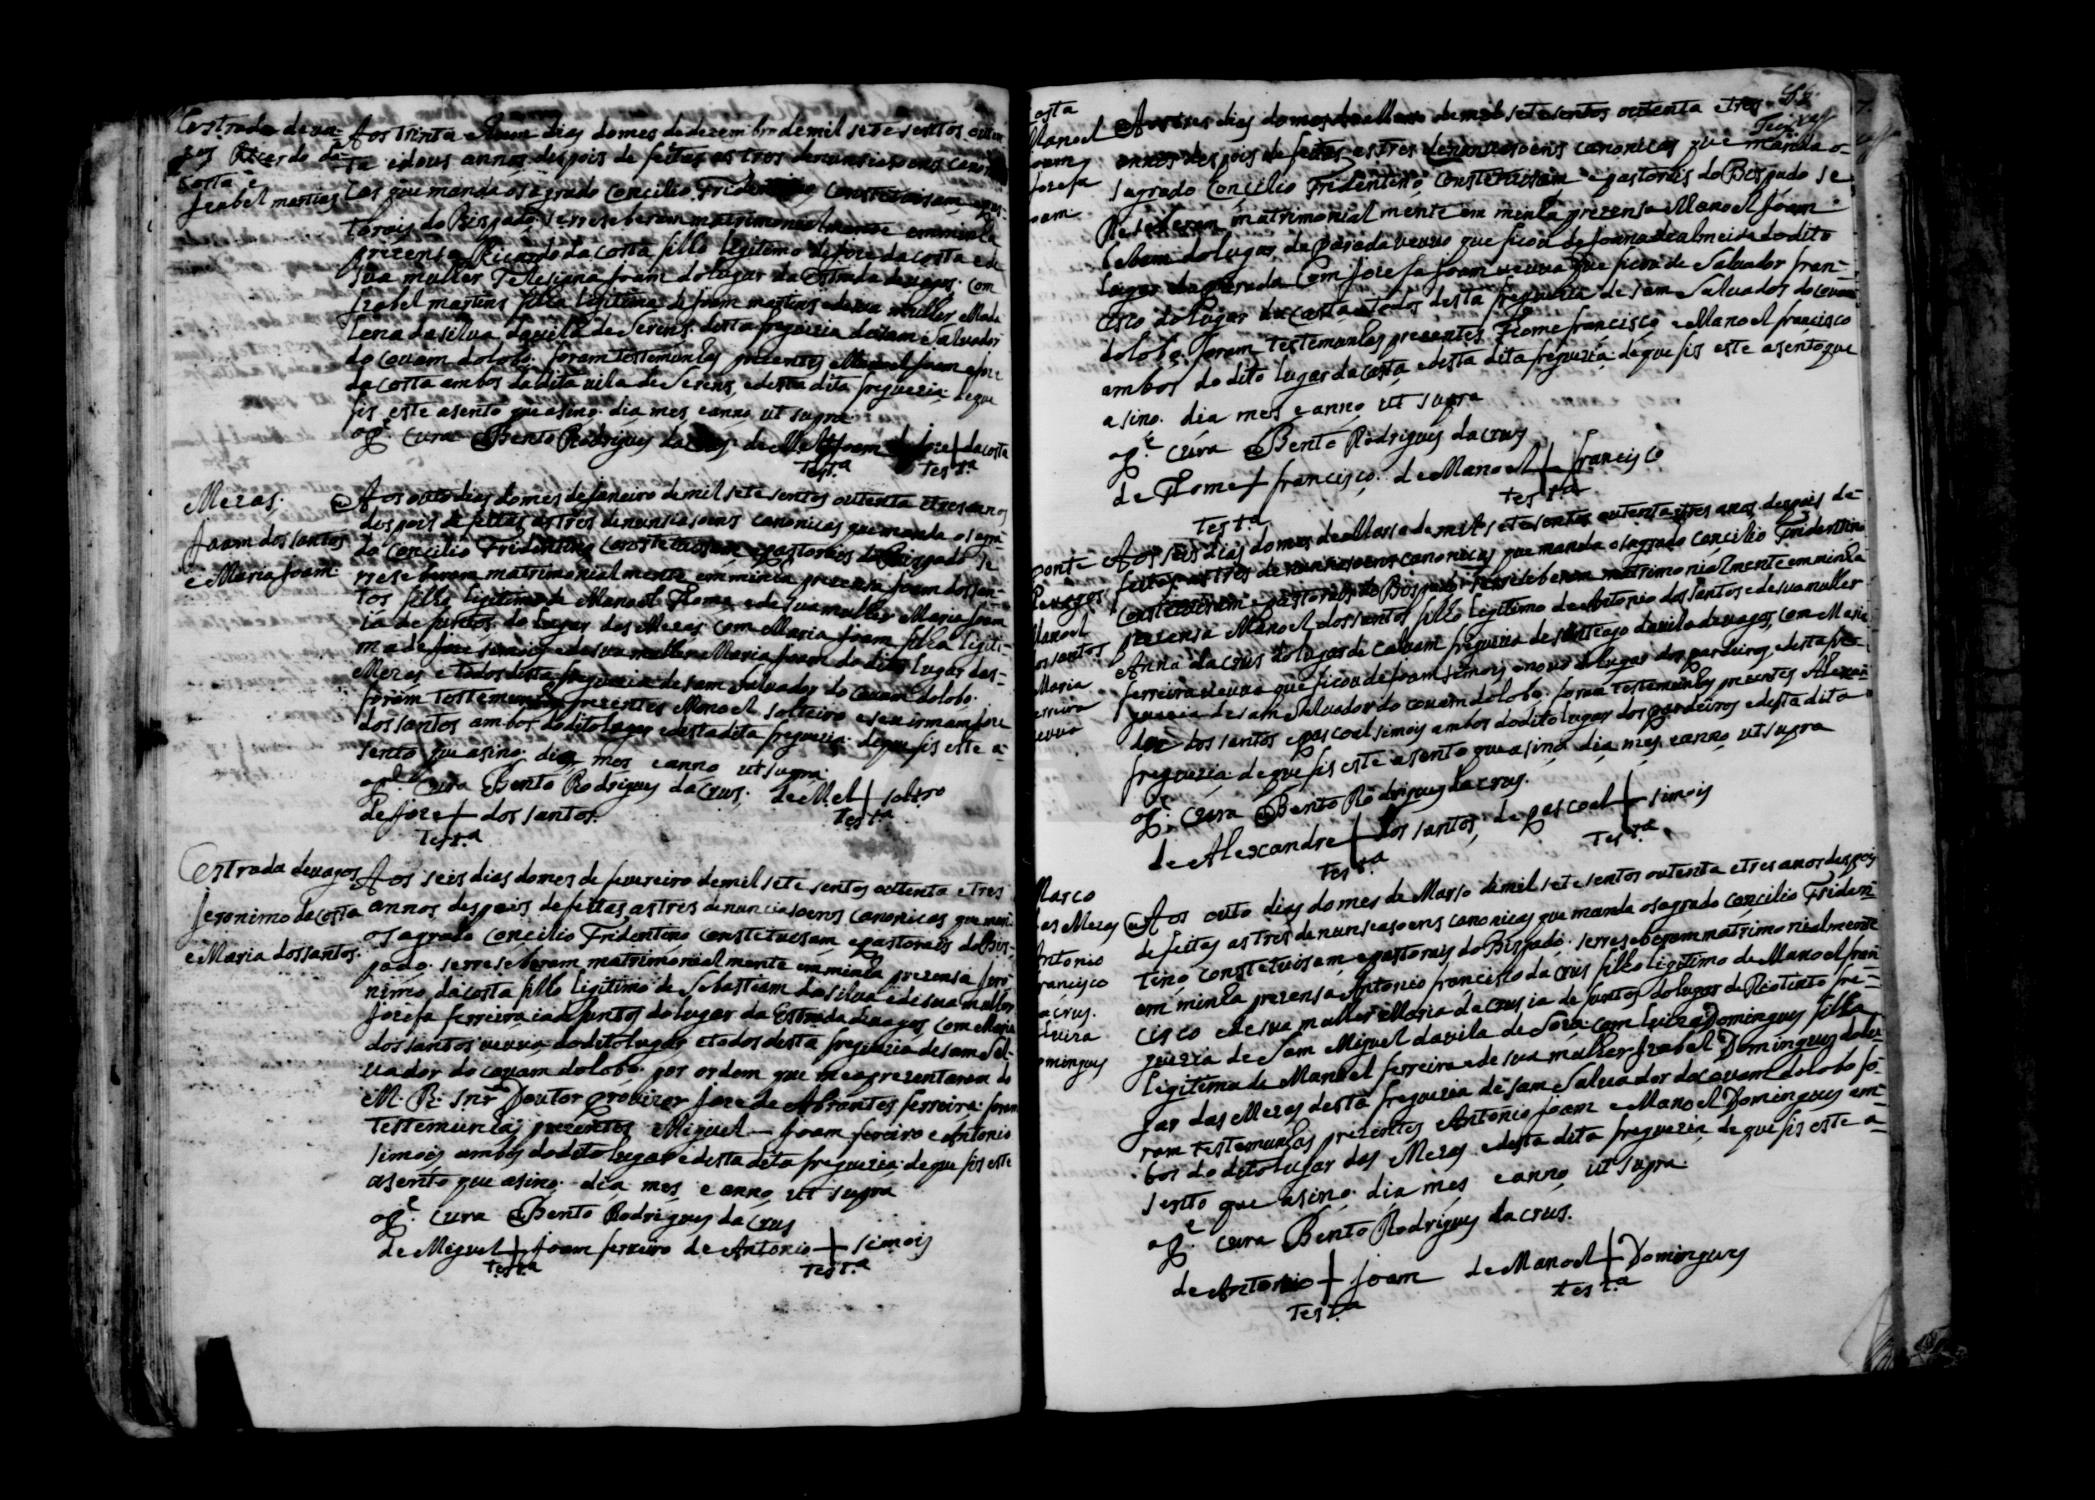 Estrada deva-
gos Ricardo da
Costa e
Izabel martins
Aos trinta e hum dias do mes de dezembro de mil sete sentos outen
ta e dous annos despois de feitas as tres denunciasoens canoni
cas que manda o sagrado Concilio Tridentino Constetuisam e pas
torais do Bispado serreseberam matrimonialmente em minha
prezensa Ricardo da Costa filho legitimo de Joze da costa e de
sua mulher Teresiana Joam do lugar da Estrada devagos com
Izabel martins filha legitima de Joam martins e de sua mulher Mada
lena da silva da vila de Serens desta freguezia de sam Salvador
do Covam do lobo foram testemunhas prezentes Manoel Joam e Joze
da Costa ambos da dita vila de Serens e desta dita freguezia de que
fis este asento que asino dia mes e anno ut supra
O Pe Cura Bento Rodrigues da Crus de Mel Joam de Joze + da costa
test.a test.a
Mezas.
Joam dos santos
e Maria Joam
Aos outo dias do mes de Janeiro de mil sete sentos outenta e tres annos
despois de feitas as tres denunciasoens canonicas que manda o sagra
do Concilio Tridentino Constetuisam e pastorais do Bispado se
rreseberam matrimonialmente em minha prezensa Joam dos san-
tos filho legitimo de Manoel Thome e de sua mulher Maria Joam
ia defuntos do lugar das Mezas com Maria Joam filha legiti-
ma de Joze simois e de sua mulher Maria Joam do dito lugar das-
Mezas e todos desta freguezia de sam salvador do Covam do lobo
foram testemunhas prezentes Manoel solteiro e seu irmam Joze
dos santos ambos do dito lugar e desta dita freguezia de que fis este a-
sento que asino dia mes e anno ut supra
O Pe Cura Bento Rodrigues da Crus. de Mel + soltro
de Joze + dos santos. test.a
test.a
Estrada devagos
Jeronimo da Costa
e Maria dos santos.
Aos seis dias do mes de fevereiro de mil sete sentos outenta e tres
annos despois de feitas as tres denunciasoens canonicas que man
o sagrado Concilio Tridentino constetuisam e pastorais do Bis-
pado serreseberam matrimonialmente em minha prezensa Jero
nimo da costa filho legitimo de Sebastiam da silva e de sua mulher
Jozefa ferreira ia defuntos do lugar da Estrada devagos com Maria
dos santos veuva do dito lugar e todos desta freguezia de sam Sal-
vador do Covam do lobo por ordem que me aprezentaram do
M. R. Snr Doutor provizor Joze de Abrantes ferreira foram
testemunhas prezentes Miguel Joam fereiro e Antonio
simois ambos do dito lugar e desta dita freguezia de que fis este
asento que asino dia mes e anno ut supra
O Pe Cura Bento Rodrigues da Crus
de Miguel + Joam ferreiro de Antonio + simois
test.a test.a
osta
Manoel
oam
Jozefa
oam
Aos tres dias do mes de Marso de mil sete sentos outenta e tres
annos despois de feitas as tres denunciasoens canonicas que manda o-
sagrado Concilio Tridentino Constetuisam e pastorais do Bispado se
Reseberam matrimonialmente em minha prezensa Manoel Joam
do lugar da parada veuvo que ficou de Joanna de almeida do dito
lugar da parada com Jozefa Joam veuva que ficou de Salvador fran-
cisco do lugar da Costa e todos desta freguezia de sam Salvador do covam
do lobo foram testemunhas prezentes Thome francisco e Manoel francisco
ambos do dito lugar da costa e desta dita freguezia de que fis este asento que
asino. dia mes e anno ut supra
O Pe Cura Bento Rodrigues da Crus
de Thome + francisco. de Manoel + francisco
test.a test.a
ponte
devagos
Manoel
os santos
Maria
erreira
veuva
Aos seis dias do mes de Marso de mil sete sentos outenta e tres anos despois de-
feitas as tres denunciasoens canonicas que manda o sagrado Concilio Tridentino
Constetuisam e pastorais do Bispado serreseberam matrimonialmente em minha
prezensa Manoel dos santos filho legitimo de Antonio dos santos e de sua mulher
Anna da Crus do lugar de Calvam freguezia de santiago da vila devagos, com Maria
ferreira veuva que ficou de Joam simois do lugar dos pardeiros e desta fre-
guezia de sam Salvador do covam do lobo foram testemunhas prezentes Alexan
dre dos santos e pascoal simois ambos do dito lugar dos pardeiros e desta dita
freguezia de que fis este asento que asino dia mes e anno ut supra
O Pe Cura Bento Rodrigues da Crus.
de Alexandre + dos santos, de pascoal + simois
test.a test.a
Marco
as Mezas
Antonio
rancisco
a Crus.
Luiza
omingues
Aos outo dias do mes de Marso de mil sete sentos outenta e tres anos despois
de feitas as tres denunciasoens canonicas que manda o sagrado Concilio Triden-
tino constetuisam e pastorais do Bispado. serreseberam matrimonialmente
em minha prezensa Antonio francisco da Crus filho legitimo de Manoel fran
cisco e de sua mulher Maria da Crus ia defuntos do lugar de Riotinto fre-
guezia de Sam Miguel da vila de Soza com Luiza Domingues filha
legitima de Manoel ferreira e de sua mulher Izabel Domingues do lu
gar das Mezas desta freguezia de sam Salvador do covam do lobo fo-
ram testemunhas prezentes Antonio Joam e Manoel Domingues am-
bos do dito lugar das Mezas e desta dita freguezia de que fis este a-
sento que asino dia mes e anno ut supra
O Pe Cura Bento Rodrigues da Crus.
de Antonio + Joam de Manoel + Domingues
test.a test.a